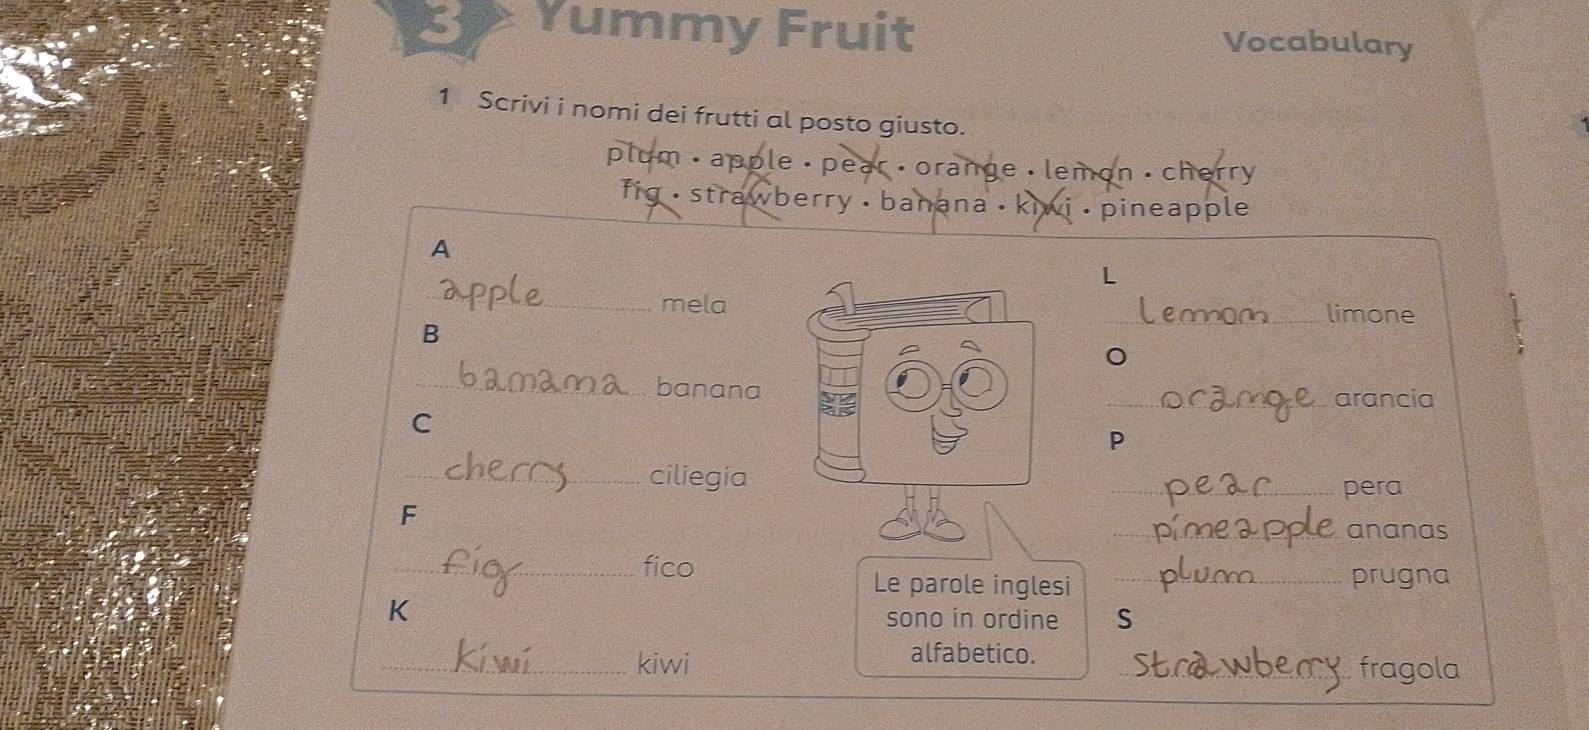 3 Yummy Fruit
Vocabulary
1 Scrivi i nomi dei frutti al posto giusto.
plum • apple • pear • orange • lemon • cherry
fig • strawberry • banana • kiwi • pineapple
A
apple mela
B
bamama banana
C
cherry ciliegia
F
fig fico
K
kiwi kiwi
Le parole inglesi
sono in ordine
alfabetico.
L
lemom limone
O
oramge arancia
P
pear pera
pimeapple ananas
plum prugna
S
strawberry fragola